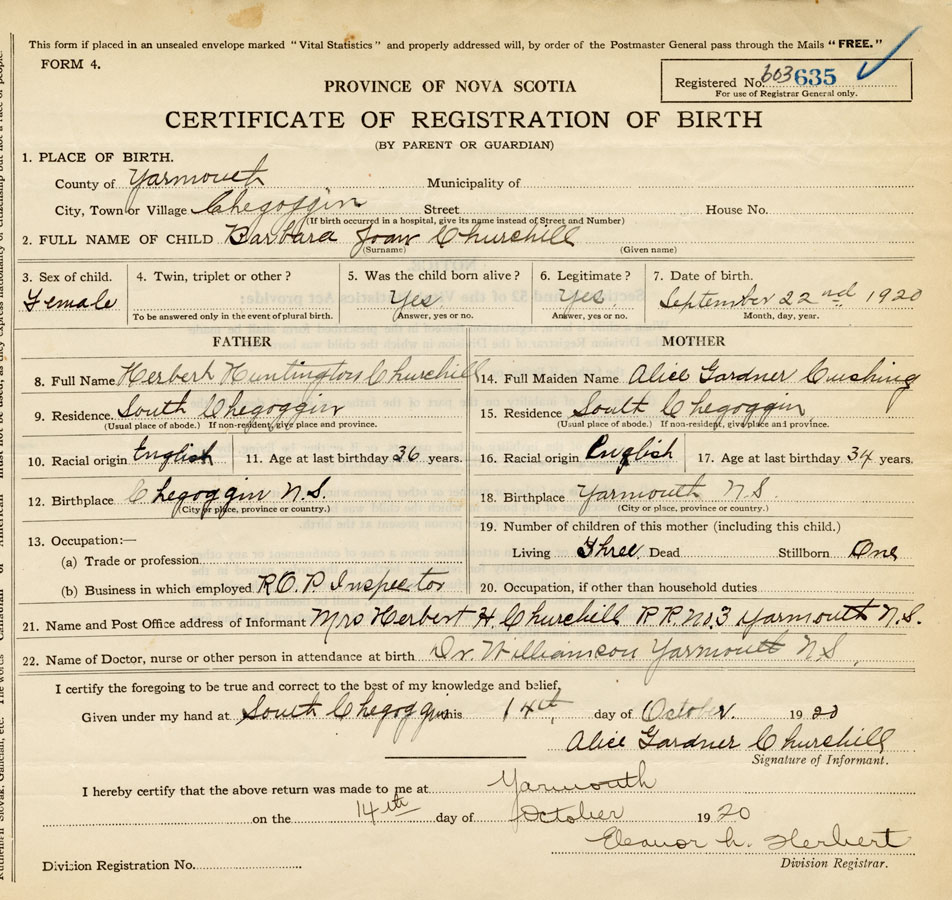 This form if placed in an unsealed envelope marked "Vital Statistics" and properly addressed will, by order of the Postmaster General pass through the Mails "FREE."
FORM 4.
Registered No. 603 635
For use of Registrar General only.
PROVINCE OF NOVA SCOTIA
CERTIFICATE OF REGISTRATION OF BIRTH
(BY PARENT OR GUARDIAN)
1. PLACE OF BIRTH.
County of Yarmouth Municipality of
City, Town or Village Chegoggin Street House No.
(If birth occurred in a hospital, give its name instead of Street and Number)
2. FULL NAME OF CHILD Barbara Joan Churchill
(Surname) (Given name)
3. Sex of child. 4. Twin, triplet or other? 5. Was the child born alive? 6. Legitimate? 7. Date of birth.
Female Yes Yes September 22nd 1920
To be answered only in the event of plural birth. Answer, yes or no. Answer, yes or no. Month, day, year.
FATHER MOTHER
8. Full Name Herbert Huntington Churchill 14. Full Maiden Name Alice Gardner Cushing
9. Residence. South Chegoggin 15. Residence South Chegoggin
(Usual place of abode.) If non-resident, give place and province. (Usual place of abode.) If non-resident, give place and province.
10. Racial origin English 11. Age at last birthday 36 years. 16. Racial origin English 17. Age at last birthday 34 years.
12. Birthplace Chegoggin N.S. 18. Birthplace Yarmouth N.S.
(City or place, province or country.) (City or place, province or country.)
13. Occupation:— 19. Number of children of this mother (including this child.)
(a) Trade or profession Living Three Dead Stillborn One
(b) Business in which employed R.O.P. Inspector 20. Occupation, if other than household duties
21. Name and Post Office address of Informant Mrs Herbert H. Churchill R.R. No.3 Yarmouth N.S.
22. Name of Doctor, nurse or other person in attendance at birth Dr. Williamson Yarmouth N.S.
I certify the foregoing to be true and correct to the best of my knowledge and belief,
Given under my hand at South Chegoggin this 14th day of October. 1920
Alice Gardner Churchill
Signature of Informant.
I hereby certify that the above return was made to me at Yarmouth
on the 14th day of October 1920
Eleanor h. Herbert
Division Registration No. Division Registrar.